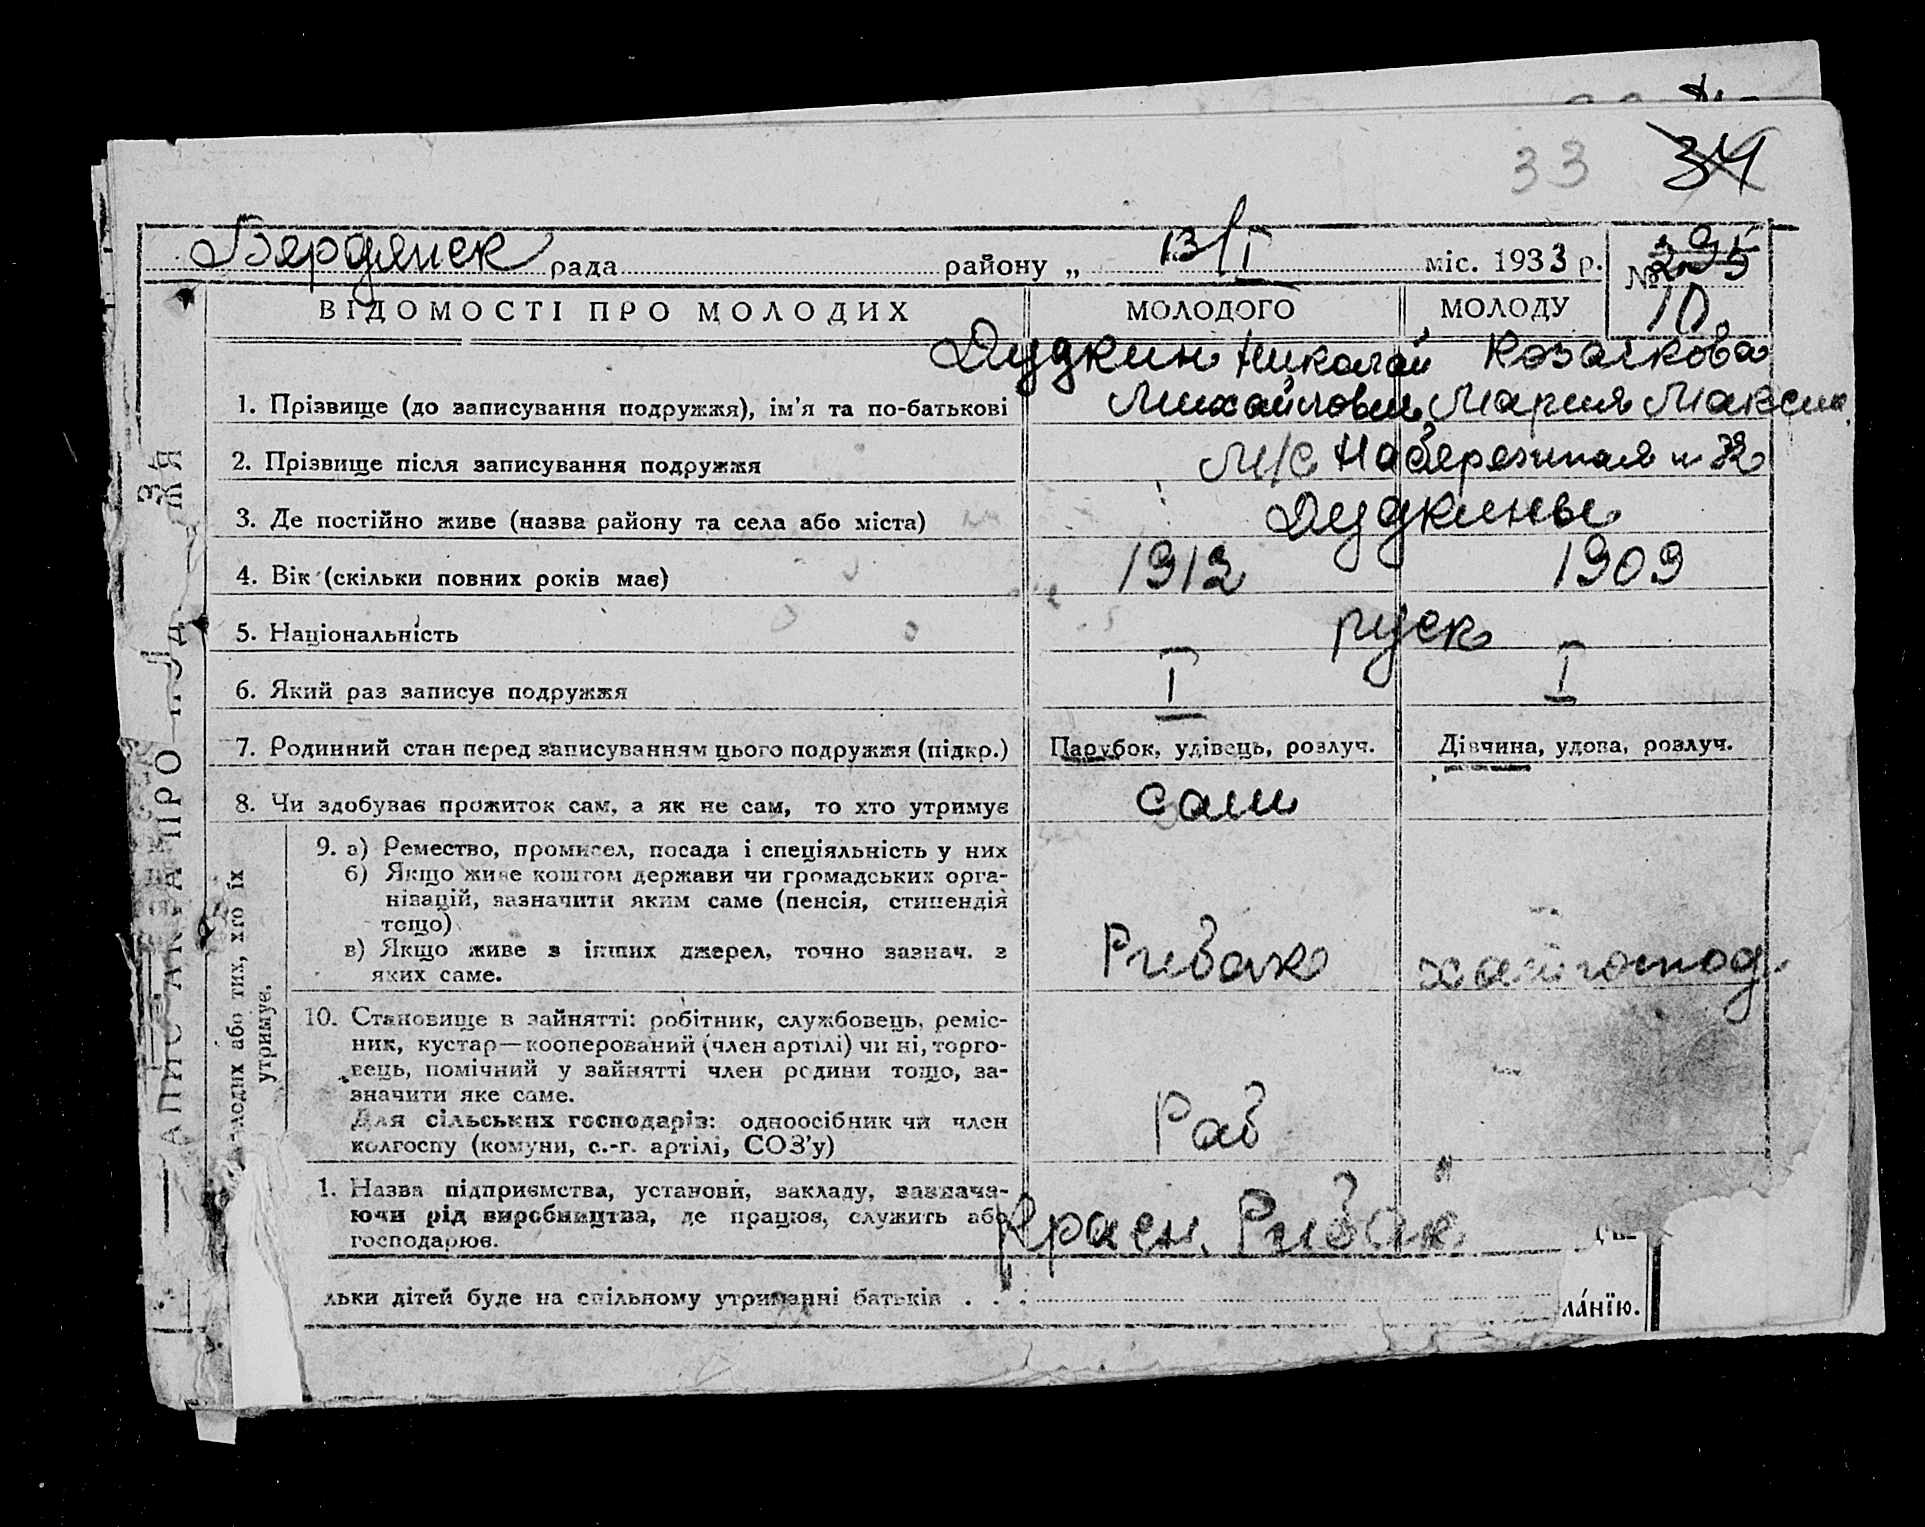 33 34
Бярдянск рада району „ 13/I міс. 1933 р. № 295
10
ВІДОМОСТІ ПРО МОЛОДИХ МОЛОДОГО МОЛОДУ
Дудкин Николай Козачкова
1. Прізвище (до записування подружжя), ім’я та по-батькові Михайлович Мария Максим
2. Прізвище після записування подружжя М/С Набережная № 32
3. Де постійно живе (назва району та села або міста) Дудкины
4. Вік (скільки повних років має) 1912 1909
5. Національність руск
6. Який раз записує подружжя I I
7. Родинний стан перед записуванням цього подружжя (підкр.) Парубок, удівець, розлуч. Дівчина, удова, розлуч.
8. Чи здобуває прожиток сам, а як не сам, то хто утримує сам
9. а) Ремество, промисел, посада і спеціяльність у них
б) Якщо живе коштом держави чи громадських орга-
нізацій, зазначити яким саме (пенсія, стипендія
тощо)
в) Якщо живе з інших джерел, точно зазнач. з
яких саме.
Рибак господ.
10. Становище в зайнятті: робітник, службовець, реміс-
ник, кустар—кооперований (член артілі) чи ні, торго-
вець, помічний у зайнятті член родини тощо, за-
значити яке саме.
Для сільських господарів: одноосібник чи член
колгоспу (комуни, с.-г. артілі, СОЗ’у)
Раб
1. Назва підприємства, установи, закладу, зазнача-
ючи рід виробництва, де працює, служить або
господарює.
Красн. Рибак
льки дітей буде на спільному утриманні батьків . . .
ла́нїю.
АПИС АКТА ПРО
молодих або тих, хто їх
утримує.